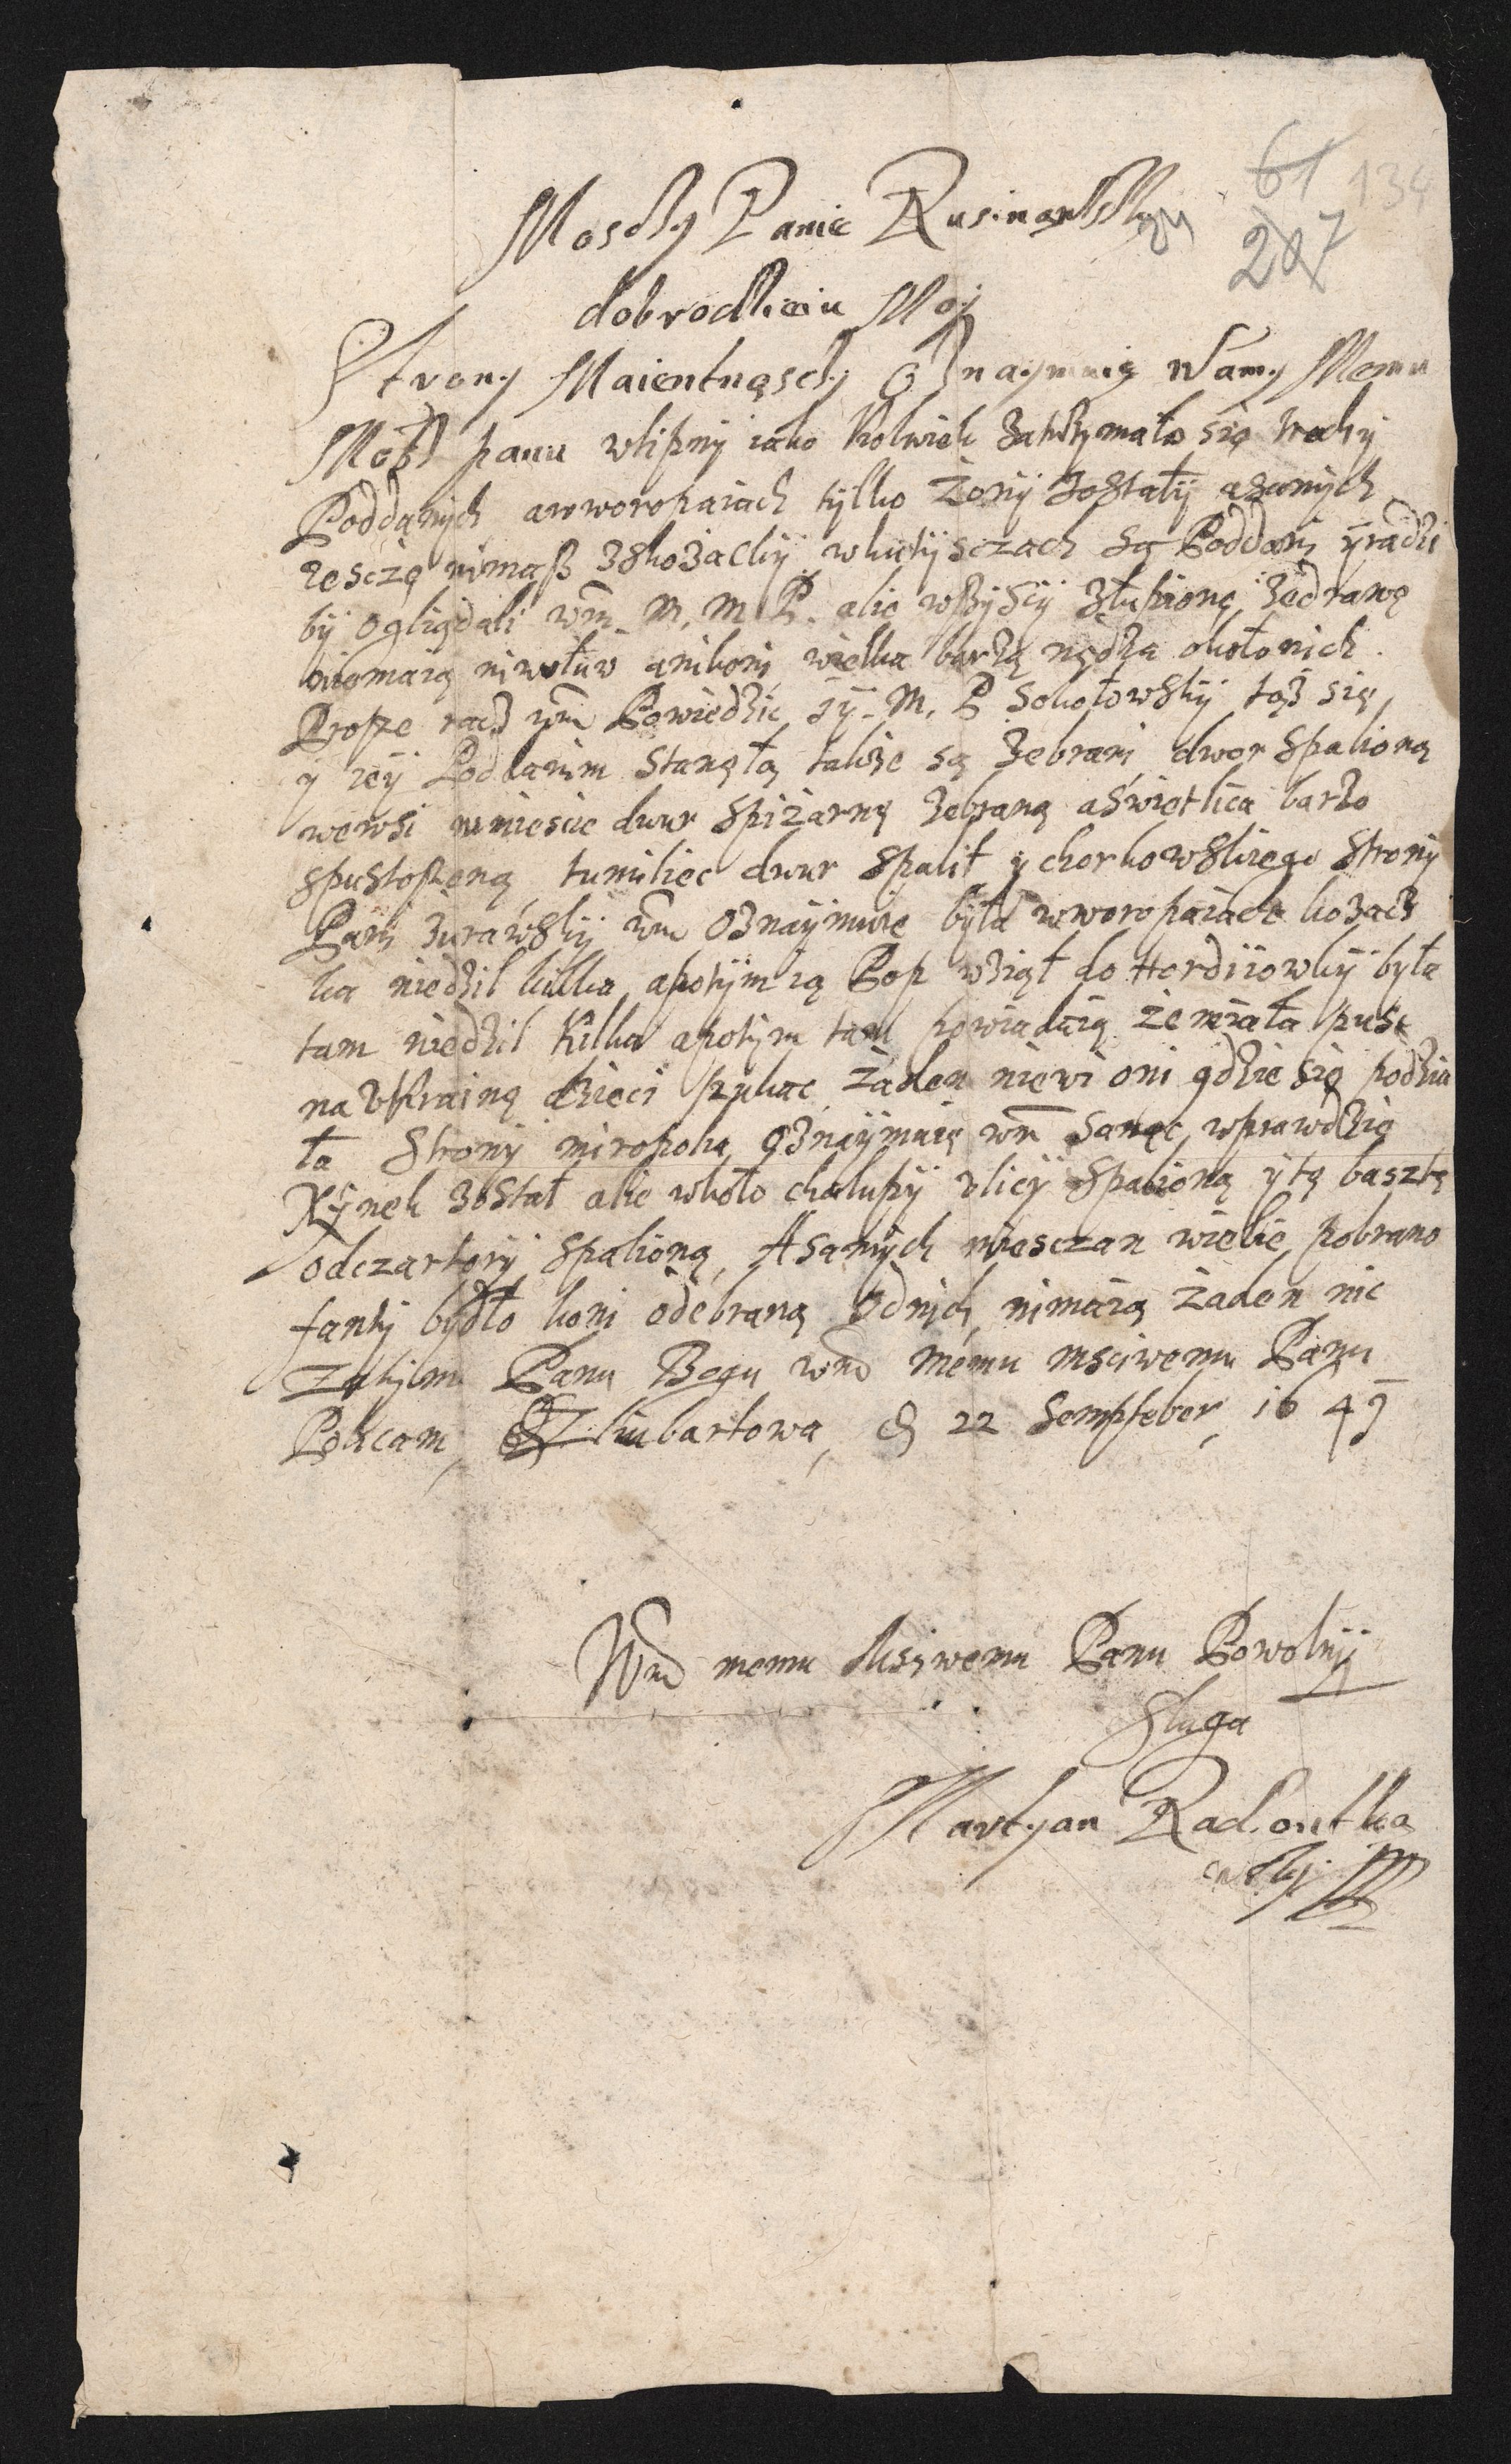 61 134
207
Mosczy Panie Rusinowsky
dobrodzieiu Moy
Strony Maientnęsczy Oznaymuię Wamy Memu
Mosz panu wlipny iako kolwiek zatrzymało się trochy
Poddanych awworopaiach tylko żony zostały asamych
iescze nimasz zkozaczy wkutysczach są Poddani y radzi
by oglięndali wm. M. M. P. alie wszyscy złupione zedrawę
niemaią niwołuw anikoni wielka barzą nędza około nich.
Prosze racz wm Powiedzic Jy. M. P Sokołowsky toż się
y iey Poddanim stanęłą takze są zebrani dwor spalioną
wewsi wmiescie dwur spiżarnę zebraną aświetlica barzo
spustoszoną tumiliec dwur spalił y chorkowskiego Strony
Pani żurawsky wm Oznaymuie była wworopaiach kozacz
ka niedzil kilka apotym ią Pop wziął do Hordiiowky była
tam niedzil kilka apotym tam powiadaią że miała pusc
na Ukrainę dzieci szukac żaden niewi oni gdzie się podzia
ła Strony miropola Oznaymuię wm sanąc wprawdzię
Rynek został alie wkoło chalupy ulicy spalioną y tę basztę
odczartory spalioną, Asamych miesczan wielie pobrano
fanty bydło koni odebraną odnich nimaią żaden nic
Zatym Panu Bogu wmo Memu msciwemu Panu
Policam, Z liubartowa, d 22 Sempteber, 1649
Wmo memu Msciwemu Panu Powolny
Sluga
Martyan Radontko
wsky